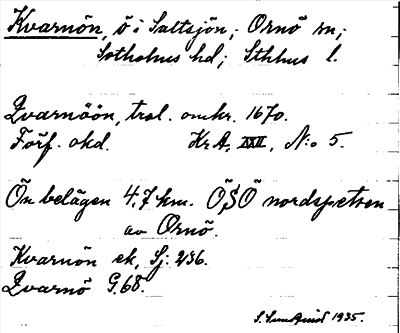 Kvarnön, ö i Saltsjön; Ornö sn;
Sotholms hd; Sthlms l.
Qvarnöön, trol. omkr. 1670.
Förf. okd. Kr.A. XXII, N:o 5.
Ön belägen 4,7 km. ÖSÖ nordspetsen
av Ornö.
Kvarnön ek, Sj. 236.
Qvarnö G.68.
S. Sundquist 1935.